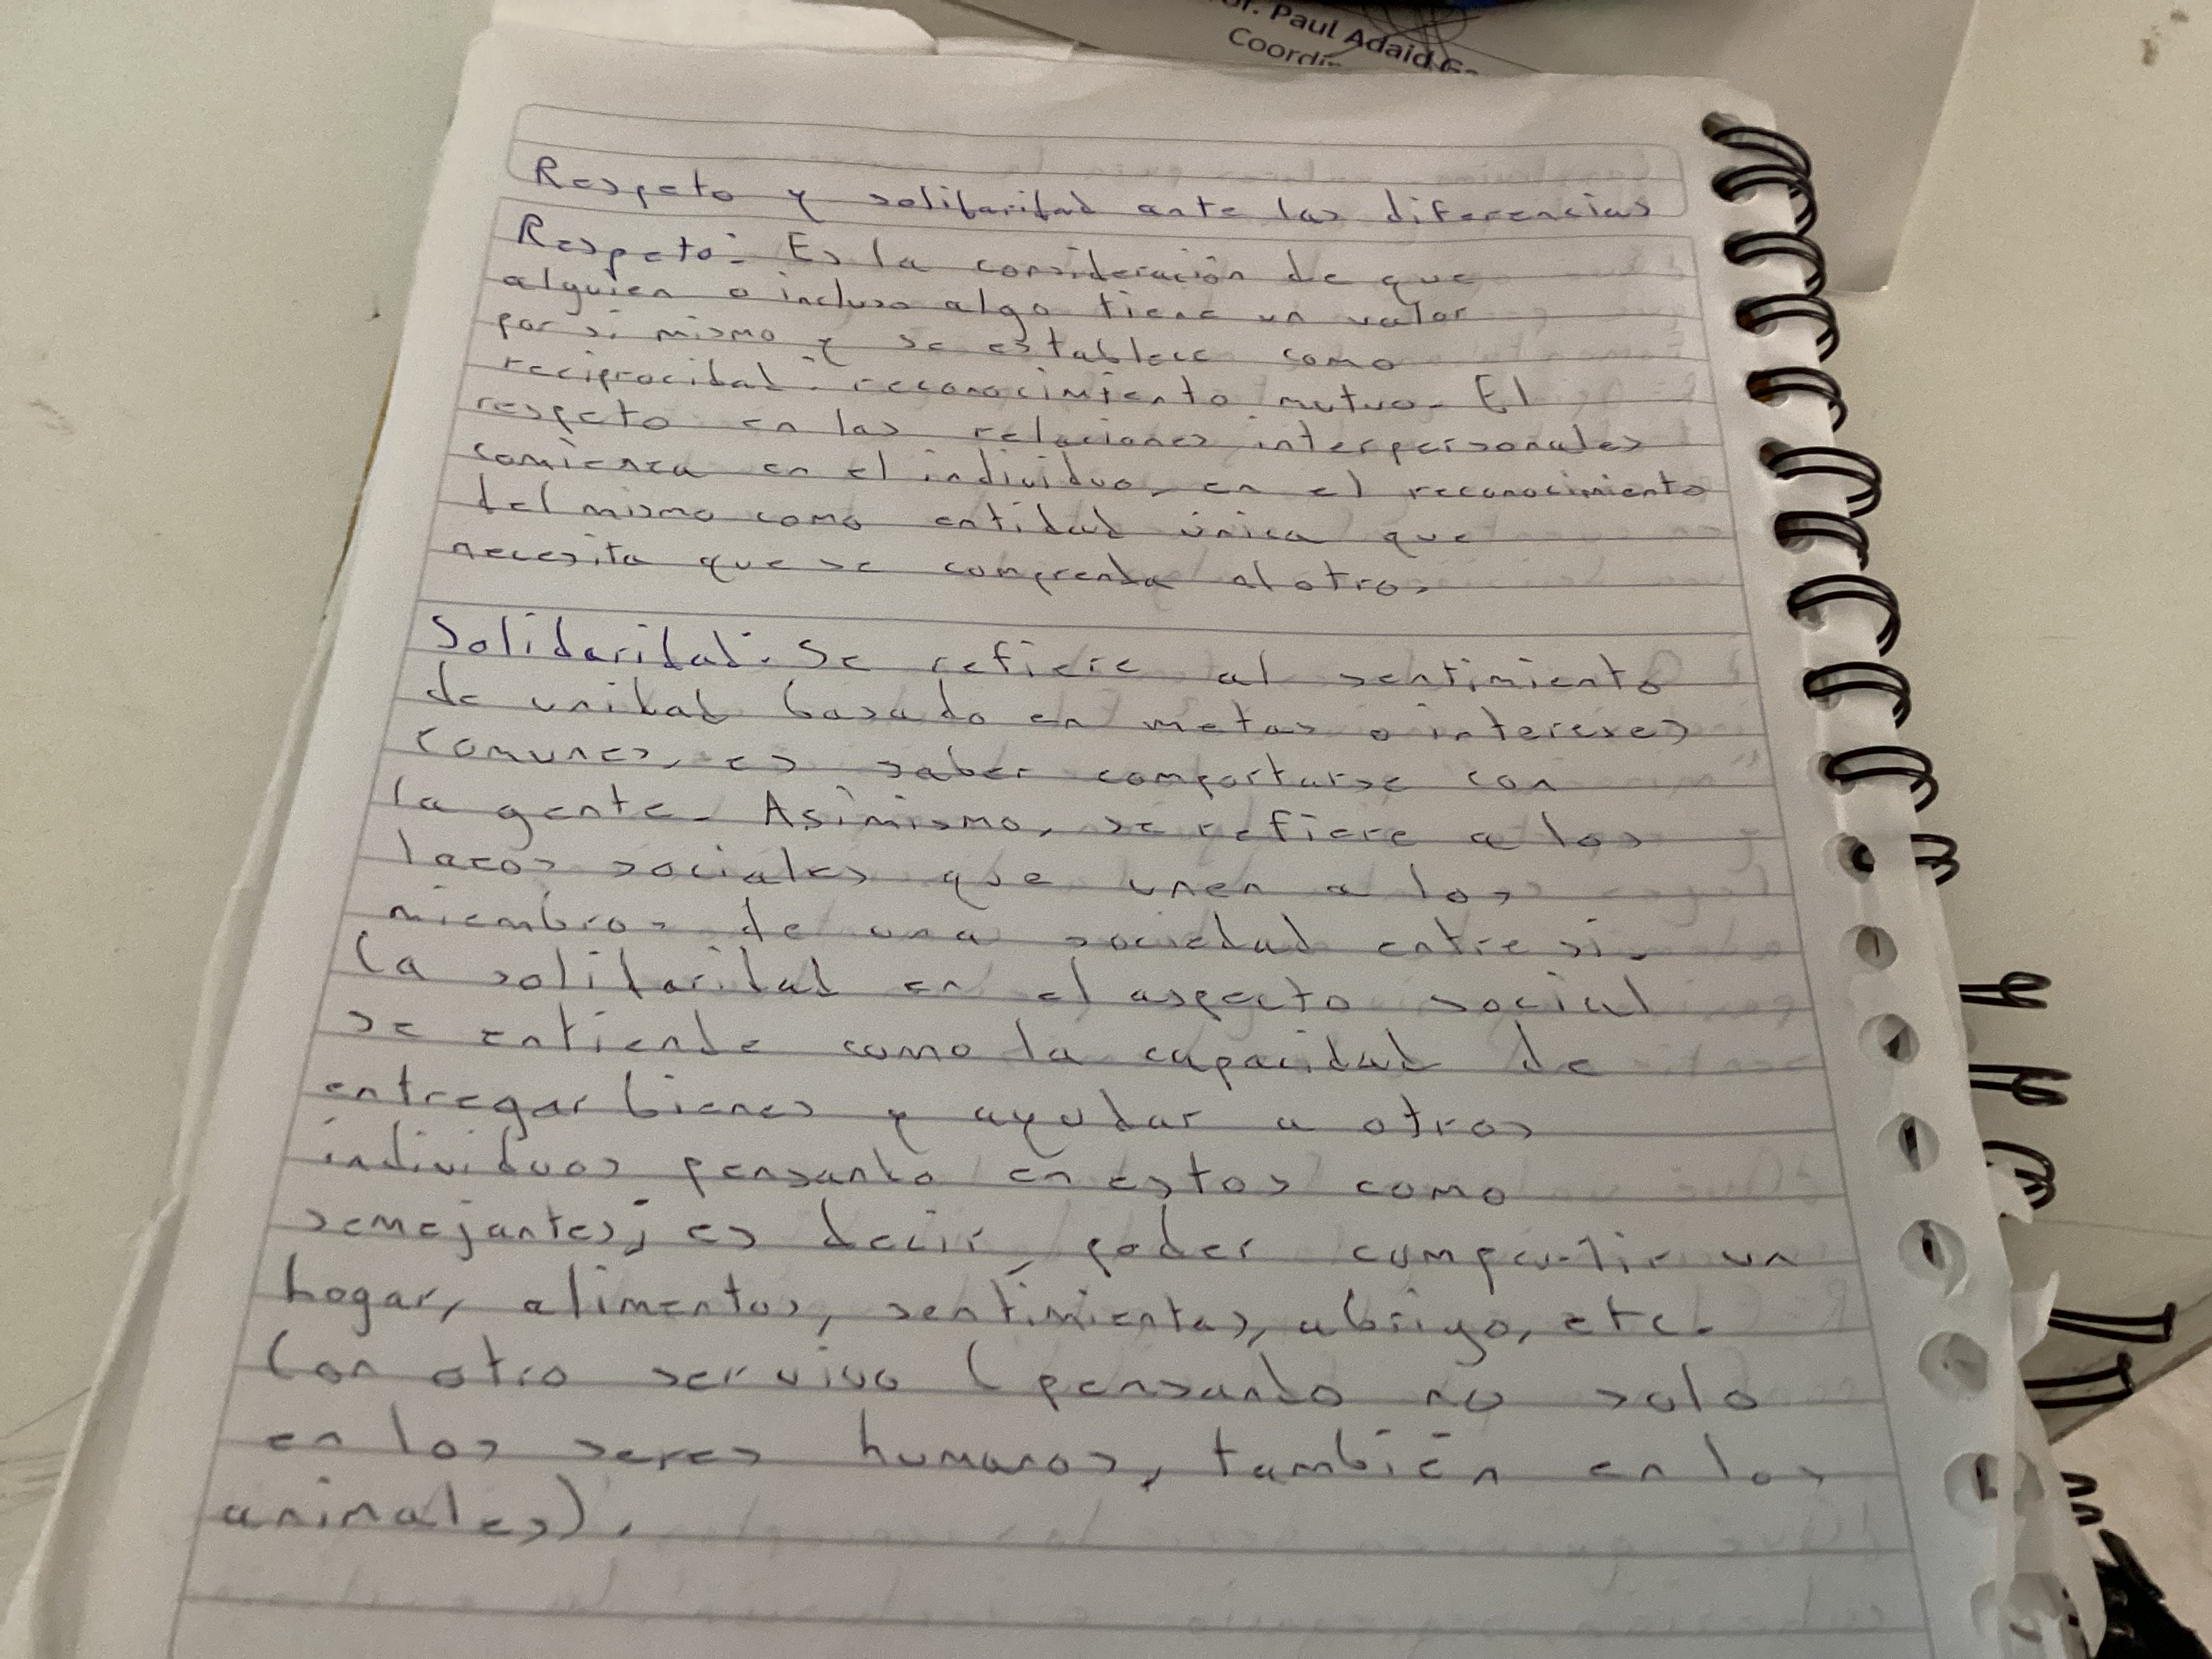 Dr. Paul Adaid
Respeto y solidaridad ante las diferencias
Respeto: Es la consideración de que
alguien o incluso algo tiene un valor
por si mismo y se establece como
reciprocidad: reconocimiento mutuo. El
respeto en las relaciones interpersonales
comienza en el individuo, en el reconocimiento
del mismo como entidad única que
necesita que se comprenda al otro.
Solidaridad: Se refiere al sentimiento
de unidad basado en metas o intereses
comunes, es saber comportarse con
la gente. Asimismo, se refiere a los
lazos sociales que unen a los
miembros de una sociedad entre si.
La solidaridad en el aspecto social
se entiende como la capacidad de
entregar bienes y ayudar a otros
individuos pensando en estos como
semejantes; es decir, poder compartir un
hogar, alimentos, sentimientos, abrigo, etc.
Con otro ser vivo (pensando no solo
en los seres humanos, también en los
animales).